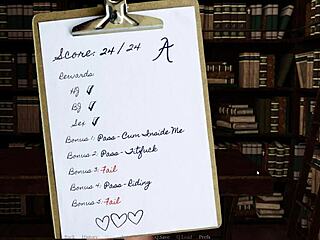 Score: 24/24 A
Rewards:
HJ ✓
BJ ✓
Sex ✓
Bonus 1: Pass - Cum Inside Me
Bonus 2: Pass - Titfuck
Bonus 3: Fail
Bonus 4: Pass - Riding
Bonus 5: Fail
Back History Q.Save Q.Load Prefs